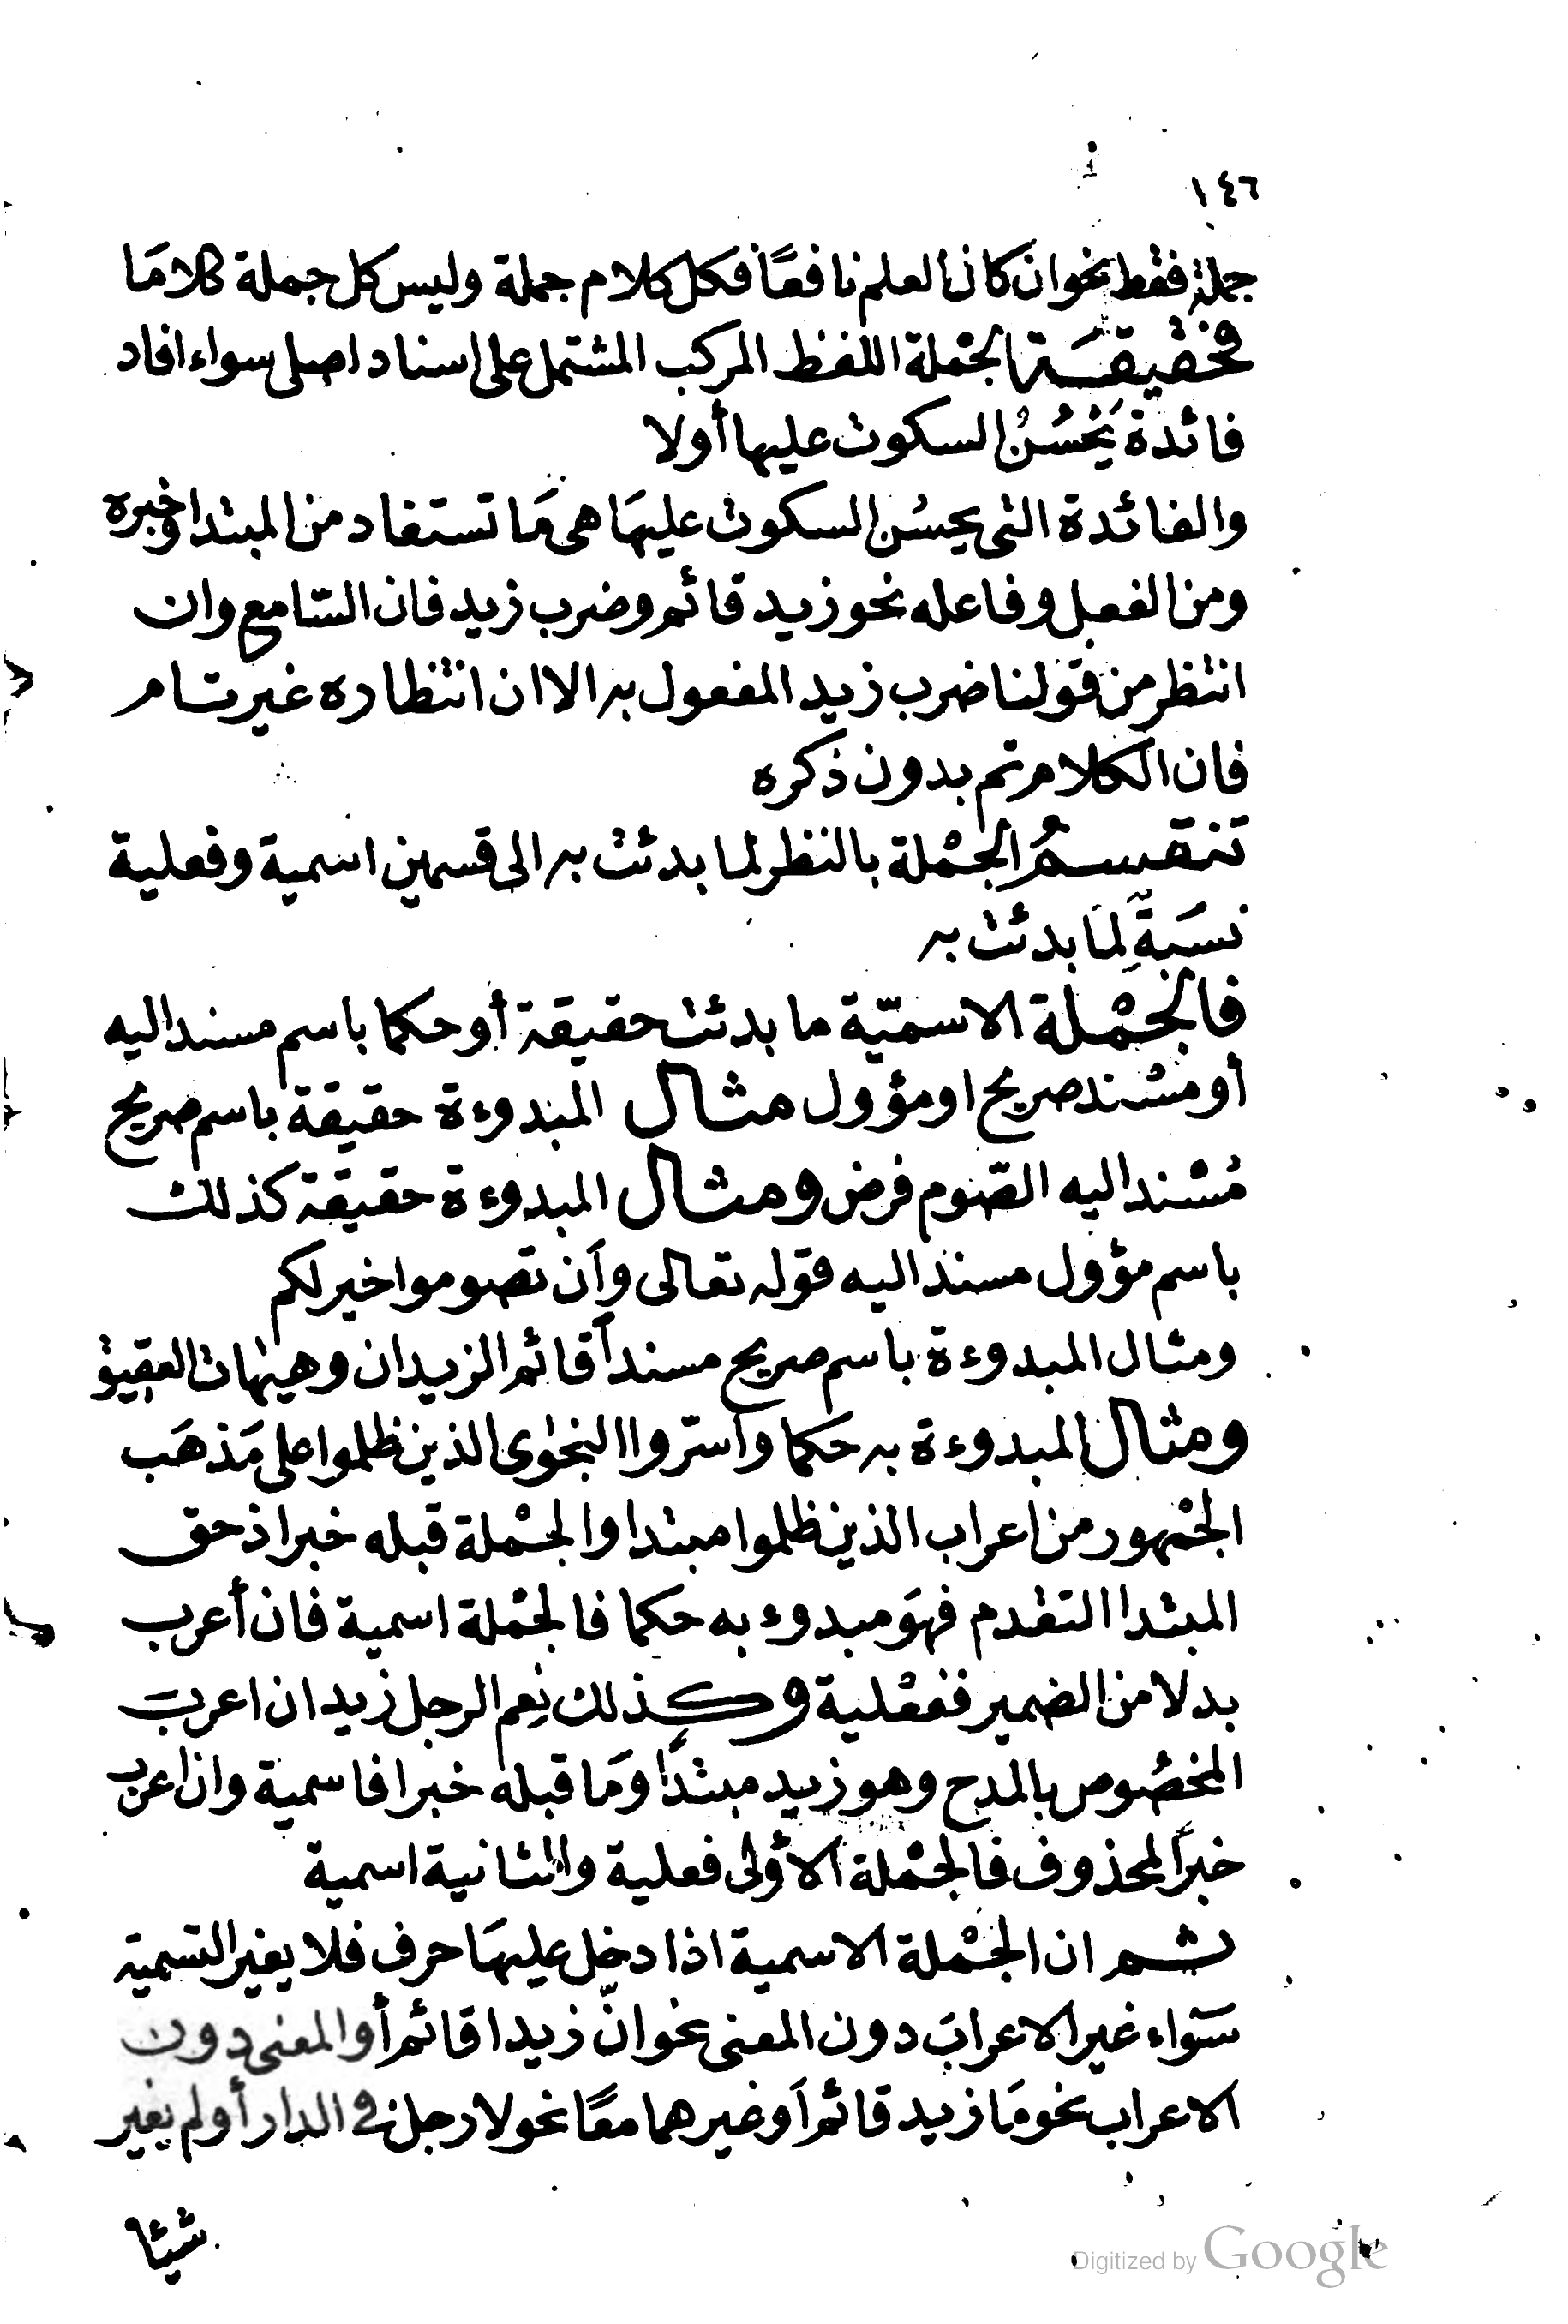 ١٤٦
جملة فقط نحو ان كان العلم نافعًا فكل كلام جملة وليس كل جملة كلامَا
فحقيقَة الجْملة اللفظ المركب المشتمل على اسناد اصلى سواء افاد
فائدة يَحْسُنُ السكوت عليها أولا
والفائدة التى يحسُن السكوت عليهَا هى مَا تستفاد من المبتدا وخبره
ومن الفعل وفاعله نحو زيد قائم وضرب زيد فان السّامع وان
انتظر من قولنا ضرب زيد المفعول به الا ان انتظاره غير تام
فان الكلام تم بدون ذكره
تنقسمُ الجْملة بالنظر لما بدئت به الى قسمين اسمية وفعلية
نسَبةً لِمَا بدئت به
فالجْملة الاسميّة ما بدئت حقيقة أو حكما باسم مسند اليه
أو مسْند صريح او مؤول مثال المبدوءة حقيقة باسم صريح
مُسْند اليه الصّوم فرض ومثال المبدوءة حقيقة كذلك
باسم مؤول مسند اليه قوله تعالى وأن تصوموا خير لكم
ومثال المبدوءة باسم صريح مسنداً قائم الزيدان وهيهات العقيق
ومثال المبدوءة به حكما وأسرّوا النجوى الذين ظلموا على مَذهَب
الجْمهور من اعراب الذين ظلموا مبتدا والجْملة قبله خبر اذ حق
المبتدا التقدم فهوَ مبدوء به حكما فالجْملة اسمية فان أعرب
بدلا من الضمير ففعْلية وكذلك نِعم الرجل زيد ان اعرب
المخصُوص بالمدح وهو زيد مبتدًا ومَا قبله خبرا فاسمية وان اعرب
خبرًا لمحذوف فالجْملة الأولى فعلية والثانية اسمية
ثم ان الجْملة الاسمية اذا دخل عليهَا حرف فلا يغير التسمية
سَواء غير الاعرابَ دون المعنى نحو انّ زيدا قائم أو المعنى دون
الاعراب نحو مَا زيد قائم أو غيرهما معًا نحو لا رجل فى الدار أو لم يغير
شيئا
Digitized by Google